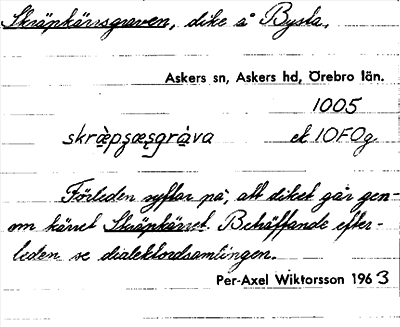 Skräpkärrsgraven, dike å Bysta,
Askers sn, Askers hd, Örebro län.
1005
skræ̀pʂæʂgràva ek 10F0g
Förleden syftar på, att diket går gen-
om kärret Skräpkärret. Beträffande efter-
leden se dialektordsamlingen.
Per-Axel Wiktorsson 1963